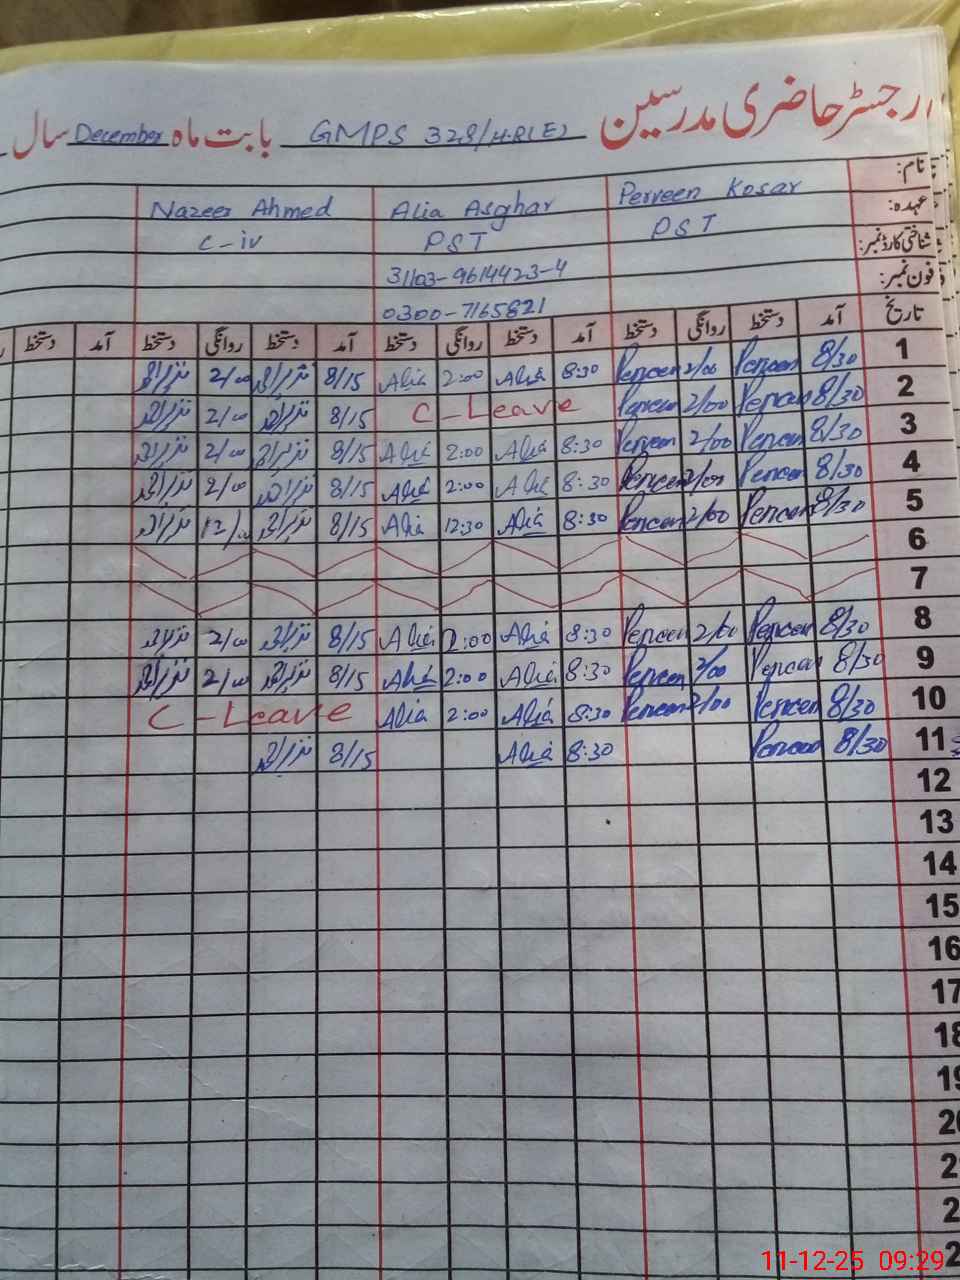 رجسٹر حاضری مدرسین GMPS 328/H.R(E) بابت ماہ December سال
نام: Perveen Kosar Alia Asghar Nazeer Ahmed
عہدہ: PST PST C-iv
شناختی کارڈ نمبر: 31103-9614423-4
فون نمبر: 0300-7165821
تاریخ آمد دستخط روانگی دستخط آمد دستخط روانگی دستخط آمد دستخط روانگی دستخط آمد دستخط
1 8/30 Perveen 2/00 Perveen 8:30 Alia 2:00 Alia 8/15 نذیر احمد 2/00 نذیر احمد
2 8/30 Perveen 2/00 Perveen C-Leave 8/15 نذیر احمد 2/00 نذیر احمد
3 8/30 Perveen 2/00 Perveen 8:30 Alia 2:00 Alia 8/15 نذیر احمد 2/00 نذیر احمد
4 8/30 Perveen 2/00 Perveen 8:30 Alia 2:00 Alia 8/15 نذیر احمد 2/00 نذیر احمد
5 8/30 Perveen 2/00 Perveen 8:30 Alia 12:30 Alia 8/15 نذیر احمد 12/00 نذیر احمد
6
7
8 8/30 Perveen 2/00 Perveen 8:30 Alia 2:00 Alia 8/15 نذیر احمد 2/00 نذیر احمد
9 8/30 Perveen 2/00 Perveen 8:30 Alia 2:00 Alia 8/15 نذیر احمد 2/00 نذیر احمد
10 8/30 Perveen 2/00 Perveen 8:30 Alia 2:00 Alia C-Leave
11 8/30 Perveen 8:30 Alia 8/15 نذیر احمد
12
13
14
15
16
17
18
19
20
2
2
2
11-12-25 09:29